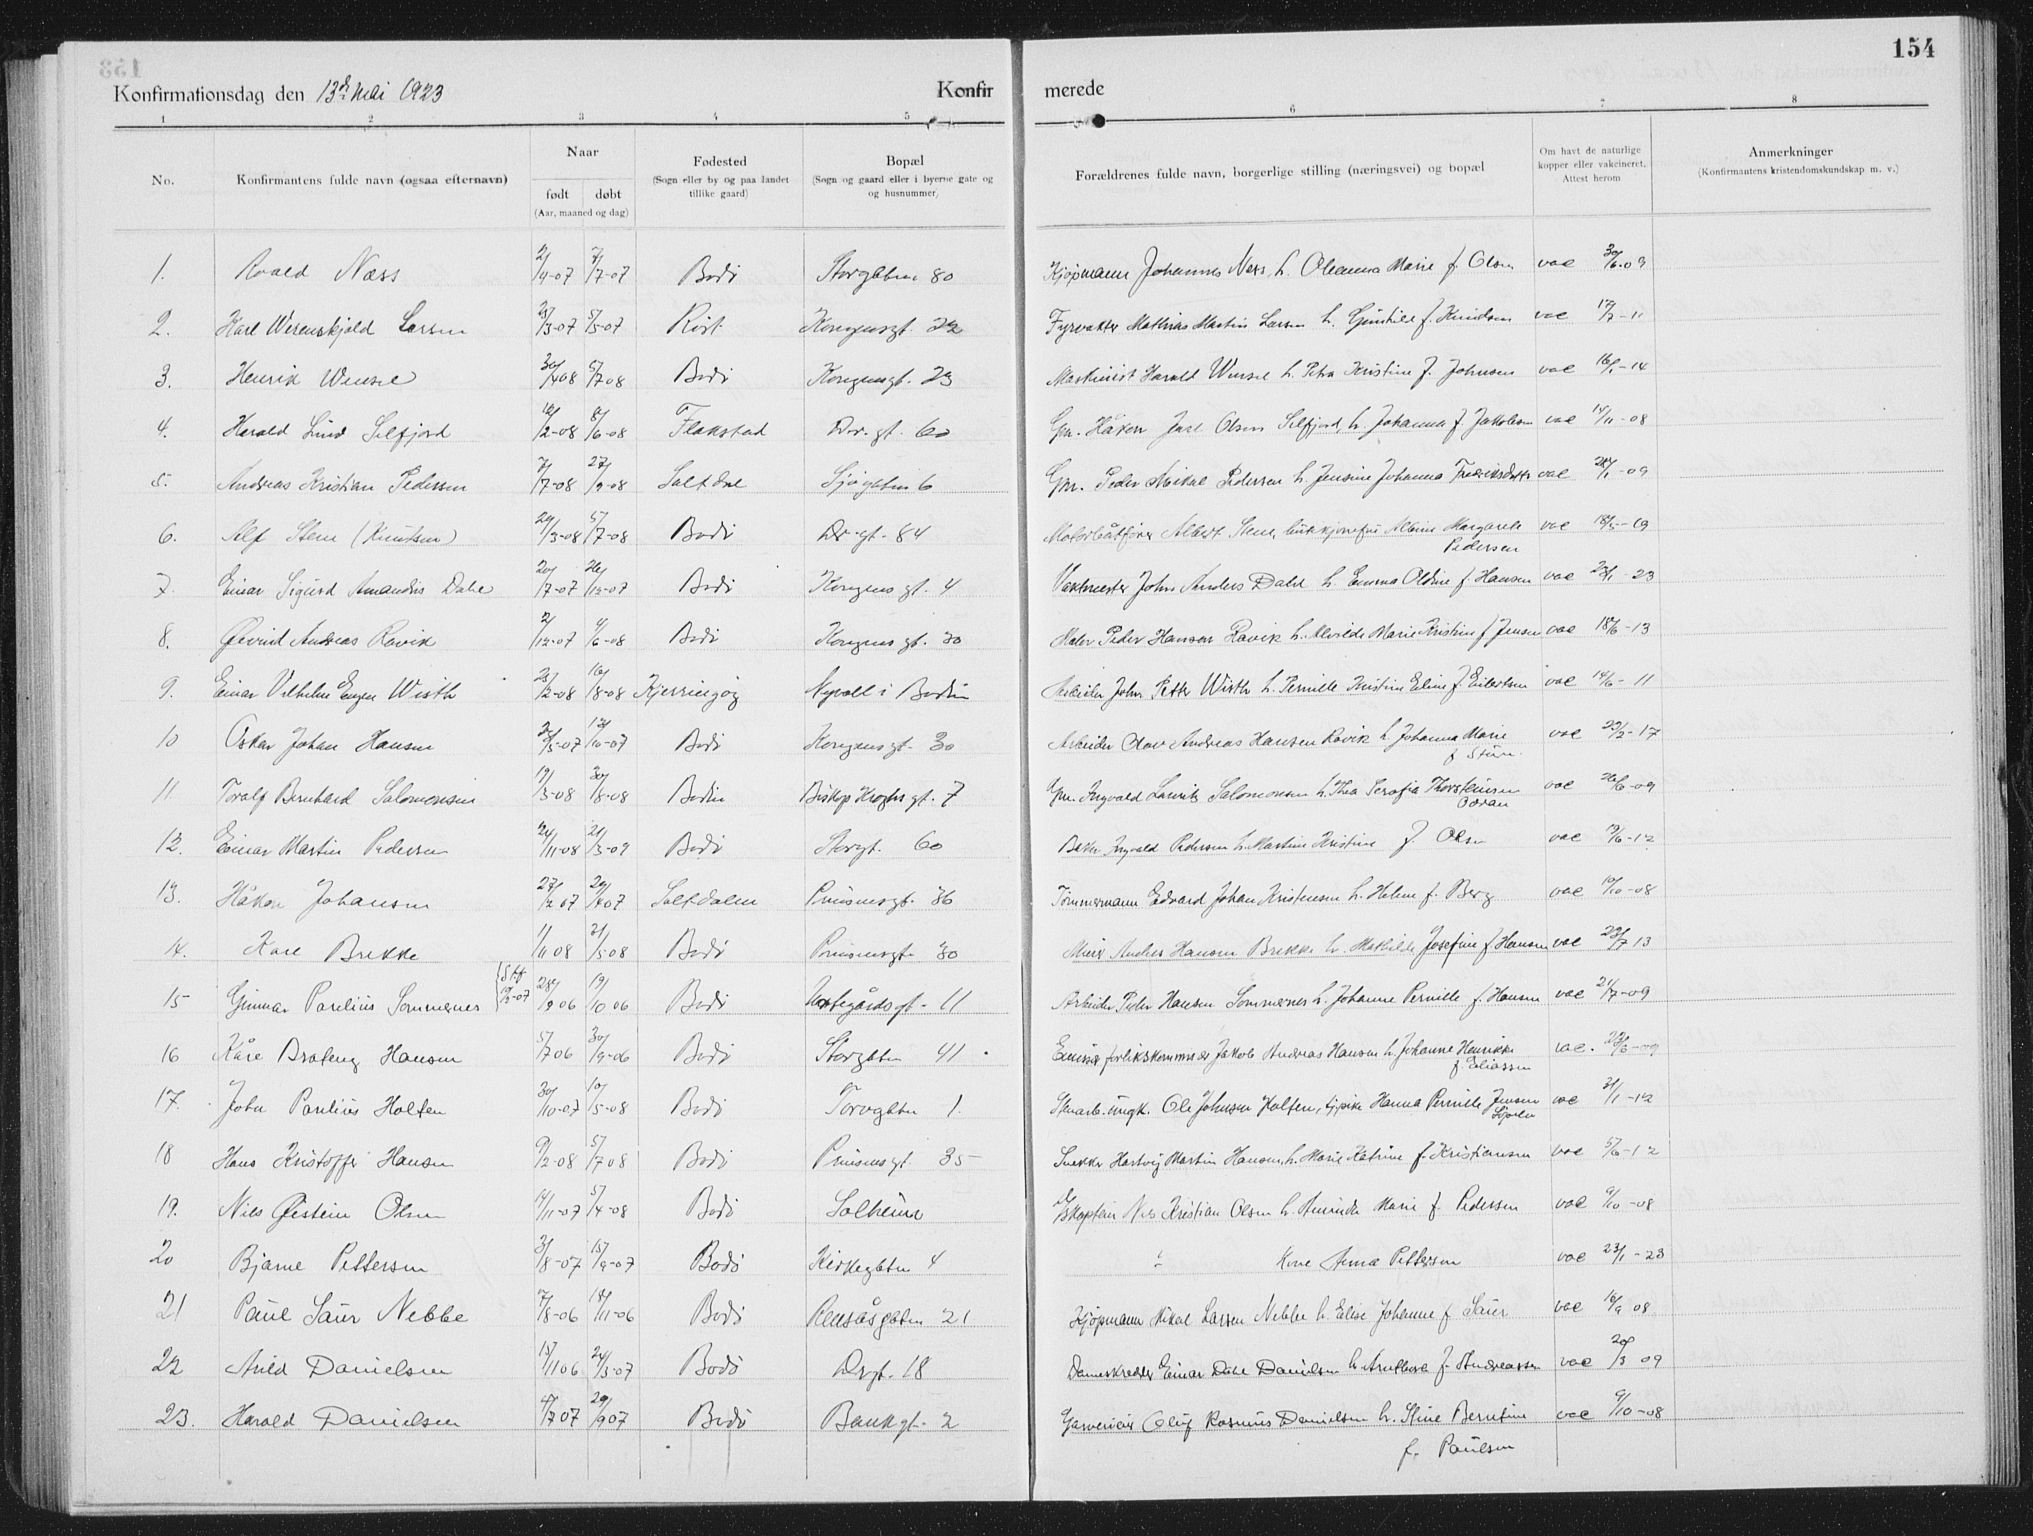 154
Konfirmationsdag den 13de Mai 1923
Konfir merede
1 2 3 4 5 6 7 8
No.
Konfirmantens fulde navn (ogsaa efternavn)
Naar
født døbt
(Aar, maaned og dag)
Fødested
(Sogn eller by og paa landet
tillike gaard)
Bopæl
(Sogn og gaard eller i byerne gate og
og husnummer)
Forældrenes fulde navn, borgerlige stilling (næringsvei) og bopæl
Om havt de naturlige
kopper eller vakcineret.
Attest herom
Anmerkninger
(Konfirmantens kristendomskundskap m. v.)
1. Roald Næss 2/4-07 7/7-07 Bodø Storgaten 80 Kjøpmann Johannes Næss, h. Oleanna Marie f. Olsen vac 30/6-09
2. Karl Werenskjold Larsen /3-07 5/5-07 Røst Kongensgt. 22 Fyrvokter Mathias Martin Larsen h. Gunhild f. Knudsen vac 17/7-11
3. Henrik Wensel 30/4 08 5/7 08 Bodø Kongensgt. 23 Maskinist Harald Wensel h. Petra Kristine f. Johnsen vac 16/-14
4. Harald Lund Selfjord /2-08 8/6-08 Flakstad Dr. gt. 60 Gm. Håkon Juel Olsen Selfjord, h. Johanna f Jakobsen vac 14/11-08
5. Andreas Kristian Pedersen 7/7-08 27/9-08 Saltdal Sjøgaten 6 Gm. Peder Mikal Pedersen h. Jensine Johanna Fredriksdatter vac 28/1-09
6. Alf Stene (Knutsen) 29/3-08 5/7-08 Bodø Dr. gt. 84 Motorbåtfører Albert Stene, Albine Margarete vac 18/5-19
Pedersen
7. Einar Sigurd Amandus Dahl 20/7-07 26/12-07 Bodø Kongens gt. 4 Vaktmester John Anders Dahl h. Emma Oldine f Hansen vac 23/1-23
8. Øivind Andreas Ravik 2/12-07 /6-08 Bodø Kongens gt. 30 Maler Peder Hansen Ravik h. Alvilde Marie Kristine f Jensen vac 18/6-13
9. Einar Vilhelm Eugen Wisth 23/2-08 16/8-08 Kjerringøy Nyvoll i Bodin Arbeider John Petter Wisth h. Pernille Kristine Eline f Eilertsen vac 14/6-11
10 Oskar Johan Hansen /5-07 13/10-07 Bodø Kongensgt. 30 Arbeider Olav Andreas Hansen Ravik h. Johanna Marie vac 22/2-17
11 Toralf Bernhard Salomonsen 19/3-08 30/8-08 Bodin Biskop Kroghs gt. 7 Gm. Ingvald Lauritz Salomonsen h. Thea Serafia Thorsteinsen vac 26/6-09
12. Einar Martin Pedersen 24/11-08 21/3-09 Bodø Storgt. 60 Baker Ingvald Pedersen h. Martine Kristine f. Olsen vac /6-12
13. Håkon Johansen 27/2 07 29/4 07 Saltdalen Prinsensgt. 36 Tømmermann Edvard Johan Kristensen h. Helene f. Berg vac 10/10-08
14. Kare Brekke 1/11 08 31/5 08 Bodø Prinsensgt. 30 Murer Anders Hansen Brekke h. Mathilde Josefine f Hansen vac 23/7 13
15 Gunnar Parelius Sommernes 28/9 06 19/10 06 Bodø Hestegårdsgt. 11 Arbeider Peder Hansen Sommernes h. Johanne Pernille f. Hansen vac 21/7-09
16 Kåre Drafeng Hansen 5/7 06 30/9-06 Bodø Storgaten 41. forlikskommisær Jakob Andreas Hansen h. Johanne Henrikke vac. 22/6-09
f Eliassen
17. John Parelius Holten 30/10-07 10/5-08 Bodø Torvgaten 1. ungk. Ole Johnsen Holten, Hanna Pernille Jensen vac 31/1-12
18 Hans Kristoffer Hansen 9/2-08 5/7 08 Bodø Prinsensgt 35 Snekker Hartvig Martin Hansen, h. Marie Katrine f. Kristiansen vac 5/6-12
19. Nils Øistein Olsen 14/11-07 5/4-08 Bodø Solheim D/skaptein Nils Kristian Olsen h. Marie f. Pedersen vac 9/10-08
20 Bjarne Pettersen 31/8-07 15/9-07 Bodø Kirkegaten 4 Kone Anna Pettersen vac 23/1-23
21 Paul Saur Nebbe 7/8-06 18/11-06 Bodø Rensåsgaten 21 Kjøpmann Mikal Larsen Nebbe h. Elise Johanne f Saur vac 16/9 08
22 Arild Danielsen 15/11 06 24/3-07 Bodø Drgt. 18 Dameskredder Einar Dahl Danielsen h. f. Andreassen vac 20/3 09
23. Harald Danielsen 4/7 07 29/9 07 Bodø Bankgt. 2 Oluf Rasmus Danielsen h. Stine Berntine vac 9/10-08
f. Paulsen